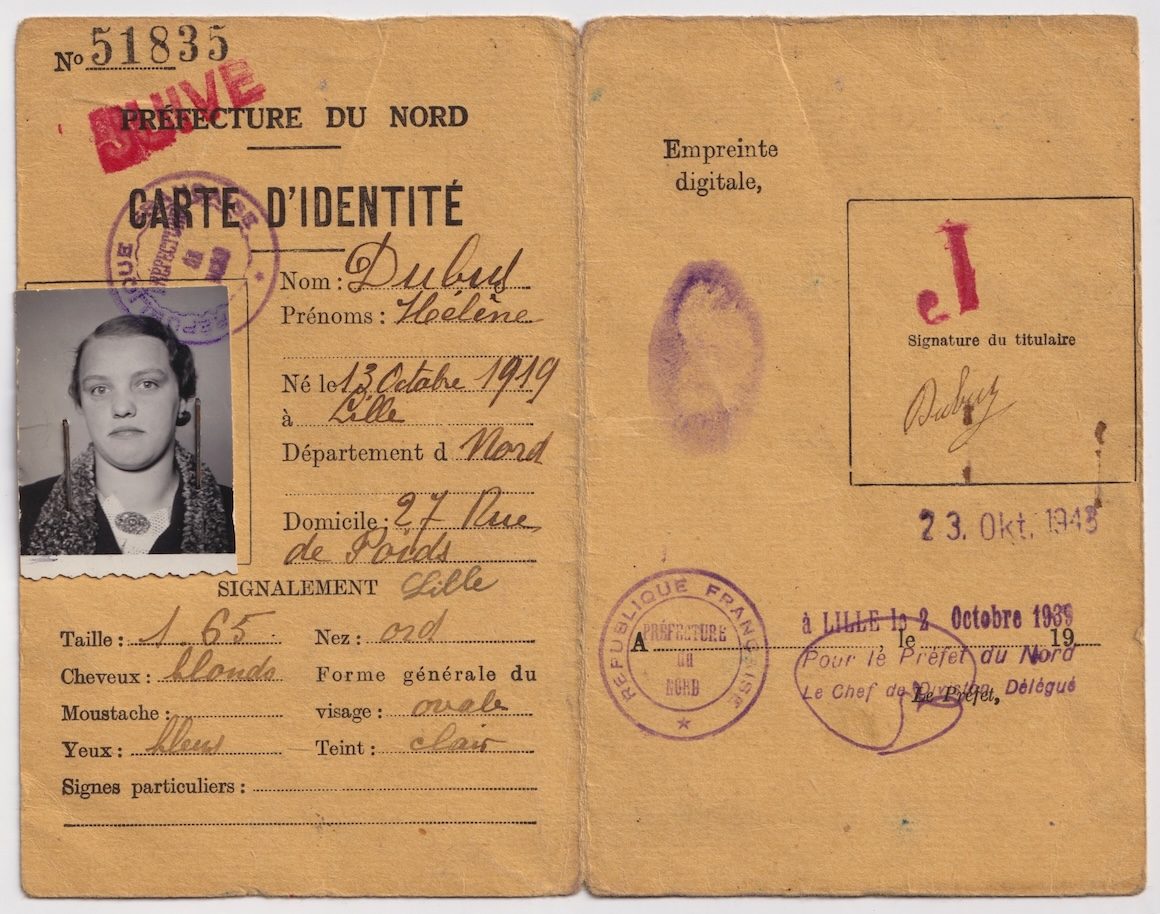 No 51835
JUIVE
PRÉFECTURE DU NORD
CARTE D'IDENTITÉ
Nom :
Prénoms : Hélène
Né le 13 Octobre 1919
à Lille
Département d Nord
Domicile : 27 Rue
de Poids
Lille
SIGNALEMENT
Taille : 1.65
Nez : ord
Cheveux : blonds
Forme générale du
visage : ovale
Moustache :
Yeux : bleus
Teint : clair
Signes particuliers :
RÉPUBLIQUE FRANÇAISE
PRÉFECTURE
Empreinte
digitale,
J
Signature du titulaire
23. Okt. 1943
RÉPUBLIQUE FRANÇAISE
PRÉFECTURE
du
NORD
à LILLE le 2 Octobre 1939
A le 19
Pour le Préfet du Nord
Le Chef de Division Délégué
Le Préfet,